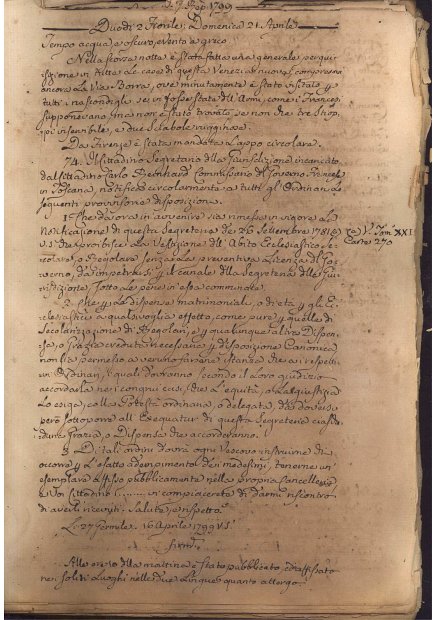 1799
Duodì 2 Fiorile, Domenica 21. Aprile
Tempo acqua, e oscuro, e vento a greco
Nella scorsa notte è stata fatta una generale perqui-
sizione in tutte le case di questa Venezia nuova, compresavi
ancora la Via Borra, ove minutamente è stato visitato
tutti i nascondigli se vi fosse stata dell'Armi, come i Francesi
supponevano, ma non è stato trovato se non che tre Stiop-
pi inservibile, e due Sciabole rugginose.
Da Firenze è stata mandata l'appo circolare.
74. Il Cittadino Segretario della Giurisdizione incaricato
dal Cittadino Carlo Reinhard Commissario del Governo Francese
in Toscana, notifica circolarmente a tutti gli Ordinari le
seguenti provvisorie disposizioni.
1. Che da ora in avvenire sia rimessa in vigore la
Notificazione di questa Segreteria de 26 Settembre 1781
V.S. che proibisce la Vestizione dell'Abito Ecclesiastico se-
colare, o Regolare senza la preventiva Licenza del Go-
verno, da impetrarsi per il canale della Segreteria della Giu-
risdizione, sotto le pene in essa comminate.
Tom. XXI
Carte 270
2. Che per le Dispense matrimoniali, o di età per gli Ec-
clesiastici a qualsivoglia effetto, come pure per quelle di
Secolarizzazione di Regolari, e per qualunque altra Dispen-
sa, o Grazia creduta necessaria per disposizione Canonica
non sia permesso a veruno farne istanza che ai respetti-
vi Ordinari, i quali potranno secondo il loro giudizio
accordarla nei congrui casi, che l'equità, o la giustizia
lo esiga, colla Potestà ordinaria, o delegata, da doversi
però sottoporre all'Exequatur di questa Segreteria ciasche-
duna Grazia, o Dispensa che accorderanno.
3. Di tali ordini dovrà ogni Vescovo instruirne chi
occorre per l'esatto adempimento dei medesimi, tenerne un
esemplare affisso pubblicamente nella propria Cancelleria,
e Voi Cittadino (........ in compiacerete di darmi riscontro
di averli ricevuti. Salute, e rispetto.
Li 27 Germile. 16 Aprile 1799 V.S.
firmat.
Alle ore 10 della mattina è stato pubblicato, ed affissato
nei soliti Luoghi nelle due Lingue quanto attergo.